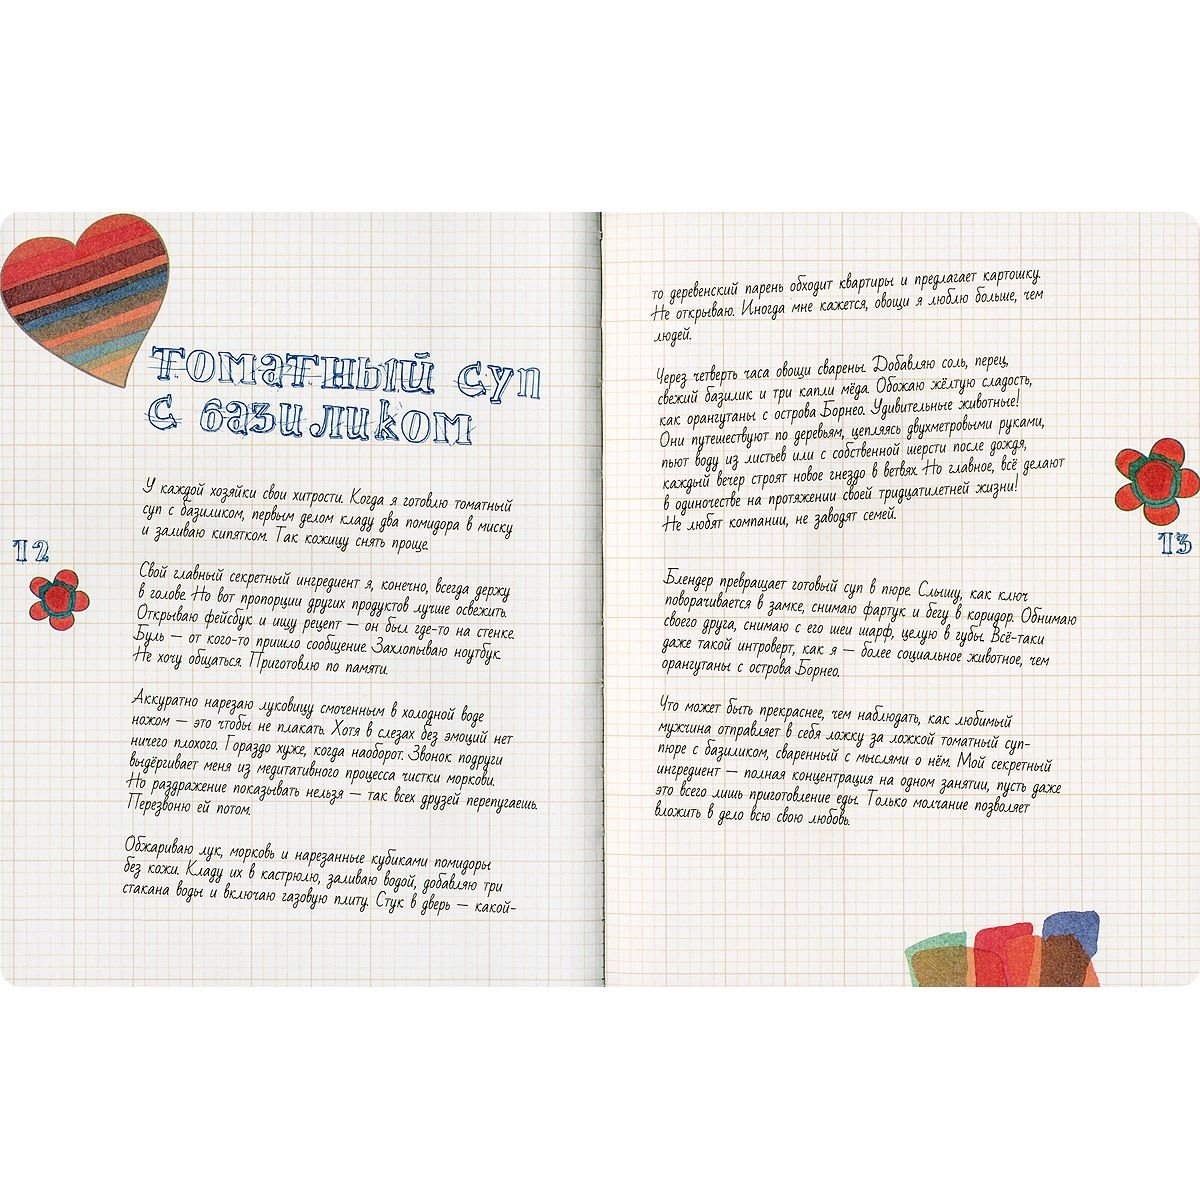 томатный суп
с базиликом
У каждой хозяйки свои хитрости. Когда я готовлю томатный
суп с базиликом, первым делом кладу два помидора в миску
и заливаю кипятком. Так кожицу снять проще.
12
Свой главный секретный ингредиент я, конечно, всегда держу
в голове. Но вот пропорции других продуктов лучше освежить.
Открываю фейсбук и ищу рецепт — он был где-то на стенке.
Буль — от кого-то пришло сообщение. Захлопываю ноутбук.
Не хочу общаться. Приготовлю по памяти.
Аккуратно нарезаю луковицу смоченным в холодной воде
ножом — это чтобы не плакать. Хотя в слезах без эмоций нет
ничего плохого. Гораздо хуже, когда наоборот. Звонок подруги
выдёргивает меня из медитативного процесса чистки моркови.
Но раздражение показывать нельзя — так всех друзей перепугаешь.
Перезвоню ей потом.
Обжариваю лук, морковь и нарезанные кубиками помидоры
без кожи. Кладу их в кастрюлю, заливаю водой, добавляю три
стакана воды и включаю газовую плиту. Стук в дверь — какой-
то деревенский парень обходит квартиры и предлагает картошку.
Не открываю. Иногда мне кажется, овощи я люблю больше, чем
людей.
Через четверть часа овощи сварены. Добавляю соль, перец,
свежий базилик и три капли мёда. Обожаю жёлтую сладость,
как орангутаны с острова Борнео. Удивительные животные!
Они путешествуют по деревьям, цепляясь двухметровыми руками,
пьют воду из листьев или с собственной шерсти после дождя,
каждый вечер строят новое гнездо в ветвях. Но главное, всё делают
в одиночестве на протяжении своей тридцатилетней жизни!
Не любят компании, не заводят семей.
13
Блендер превращает готовый суп в пюре. Слышу, как ключ
поворачивается в замке, снимаю фартук и бегу в коридор. Обнимаю
своего друга, снимаю с его шеи шарф, целую в губы. Всё-таки
даже такой интроверт, как я — более социальное животное, чем
орангутаны с острова Борнео.
Что может быть прекраснее, чем наблюдать, как любимый
мужчина отправляет в себя ложку за ложкой томатный суп-
пюре с базиликом, сваренный с мыслями о нём. Мой секретный
ингредиент — полная концентрация на одном занятии, пусть даже
это всего лишь приготовление еды. Только молчание позволяет
вложить в дело всю свою любовь.